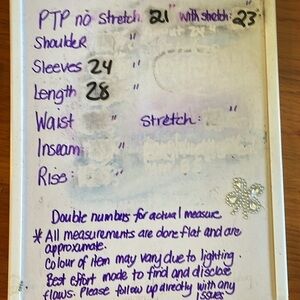 PTP no stretch 21" with stretch: 23"
Shoulder "
Sleeves 24 "
Length 28 "
Waist " Stretch: "
Inseam "
Rise: "
Double numbers for actual measure
* All measurements are done flat and are
approximate.
Colour of item may vary due to lighting.
Best effort made to find and disclose
flaws. Please follow up directly with any
issues